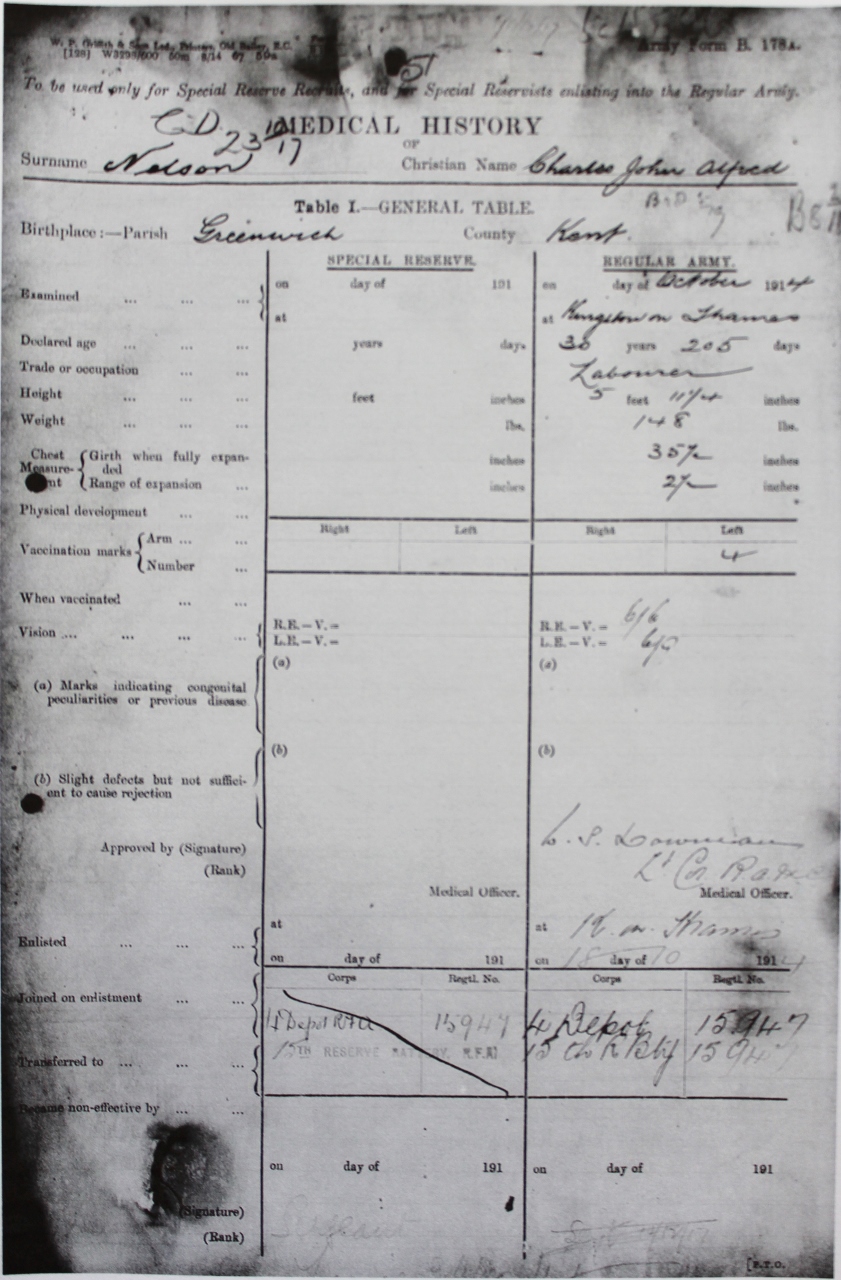 W. P. Griffith & Sons Ltd., Printers, Old Bailey, E.C.
Army Form B. 178A.
51
To be used only for Special Reserve Recruits, and for Special Reservists enlisting into the Regular Army.
C.D. 23 10/17
MEDICAL HISTORY
OF
Surname Nelson Christian Name Charles John Alfred
Table I.—GENERAL TABLE.
Birthplace:—Parish Greenwich County Kent.
SPECIAL RESERVE. REGULAR ARMY.
Examined ... ... ... on day of 191 on day of October 1914
at at Kingston on Thames
Declared age ... ... ... years days 30 years 205 days
Trade or occupation ... ... Labourer
Height ... ... ... feet inches 5 feet 11 1/4 inches
Weight ... ... ... lbs. 148 lbs.
Chest Measurement Girth when fully expanded inches 35 1/2 inches
Range of expansion ... inches 2 1/2 inches
Physical development ... ...
Right Left Right Left
Vaccination marks Arm ... ... 4
Number ...
When vaccinated ... ...
Vision ... ... ... ... R.E.—V.= R.E.—V.= 6/6
L.E.—V.= L.E.—V.=
(a) Marks indicating congenital peculiarities or previous disease (a) (a)
(b) Slight defects but not sufficient to cause rejection (b) (b)
Approved by (Signature)
(Rank)
Medical Officer. Medical Officer.
Enlisted ... ... ... at at K. on Thames
on day of 191 on 18 day of 10 1914
Corps Regtl. No. Corps Regtl. No.
Joined on enlistment ... ... 4 Depot RFA 15947 4 Depot 15947
Transferred to ... ... ... 15TH RESERVE BATTERY, R.F.A. 15 15947
Became non-effective by ... ...
on day of 191 on day of 191
(Signature)
(Rank) Sergeant
[P.T.O.